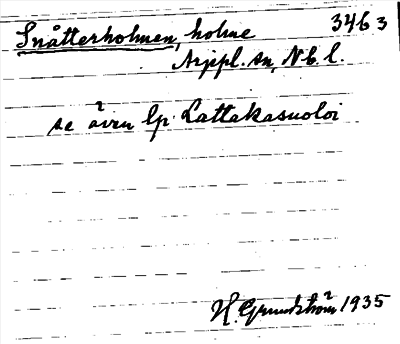 Snåtterholmen, holme 3463
Arjepl. sn, Nb. l.
se även lp. Lattakasuoloi
H. Grundström 1935